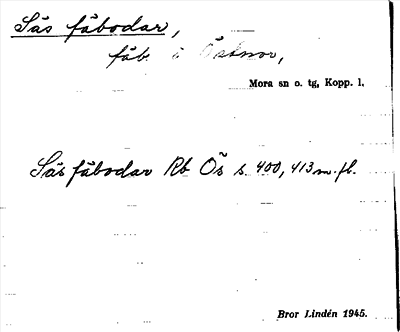 Säs fäbodar,
fäb. i Östnor,
Mora sn o. tg, Kopp. l.
Säs fäbodar Rb Ös s. 400, 413 m. fl.
Bror Lindén 1945.